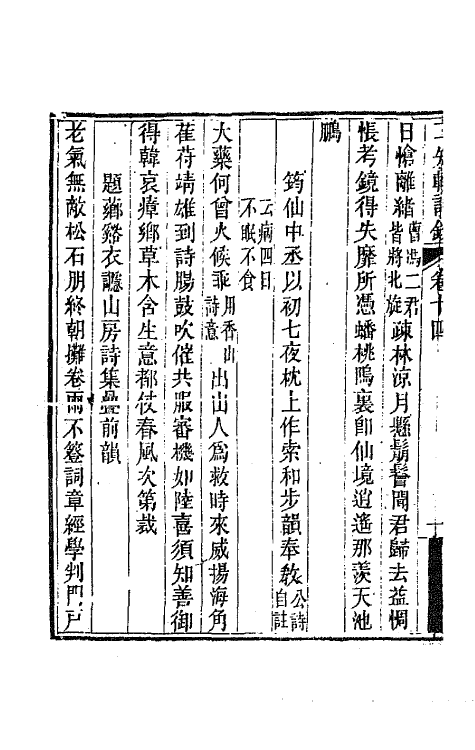 二知軒詩鈔 卷十四
日愴離緒曹馮二君皆將北旋疎林涼月懸鬅鬙聞君歸去益惆
悵考鏡得失靡所憑蟠桃隝裏卽仙境逍遙那羨天池
鵬
筠仙中丞以初七夜枕上作索和步韻奉敎公詩自註
云病四日不眠不食
大藥何曾火候乖用香山詩意出山人爲救時來威揚海角
萑苻靖雄到詩腸鼓吹催共服審機如陸喜須知善御
得韓哀瘴鄉草木含生意都仗春風次第裁
題薌谿衣讔山房詩集疊前韻
老氣無敵松石朋終朝攤卷雨不簦詞章經學判門戶